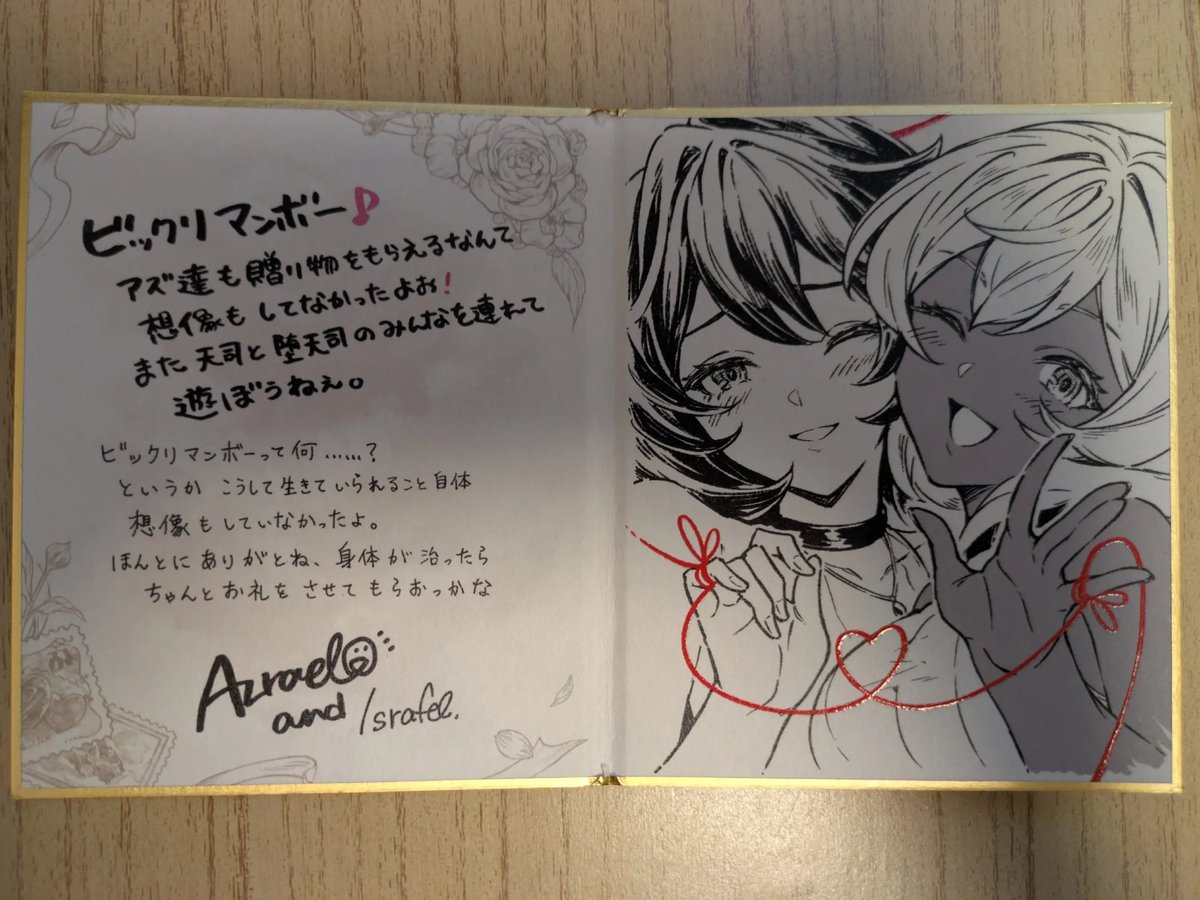 ビックリマンボー♪
アズ達も贈り物をもらえるなんて
想像もしてなかったよぉ！
また天司と堕天司のみんなを連れて
遊ぼうねぇ。
ビックリマンボーって何……？
というか こうして生きていられること自体
想像もしていなかったよ。
ほんとにありがとね、身体が治ったら
ちゃんとお礼をさせてもらおっかな
Azrael
and Israfel.